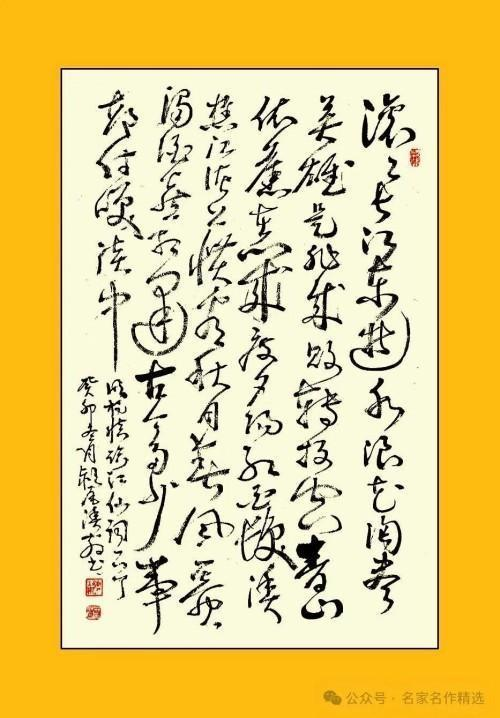 滚滚长江东逝水浪花淘尽
英雄是非成败转头空青山
依舊在几度夕阳红白发渔
樵江渚上惯看秋月春风一壶
浊酒喜相逢古今多少事
都付笑谈中
明杨慎临江仙词一首
癸卯冬月
公众号 · 名家名作精选